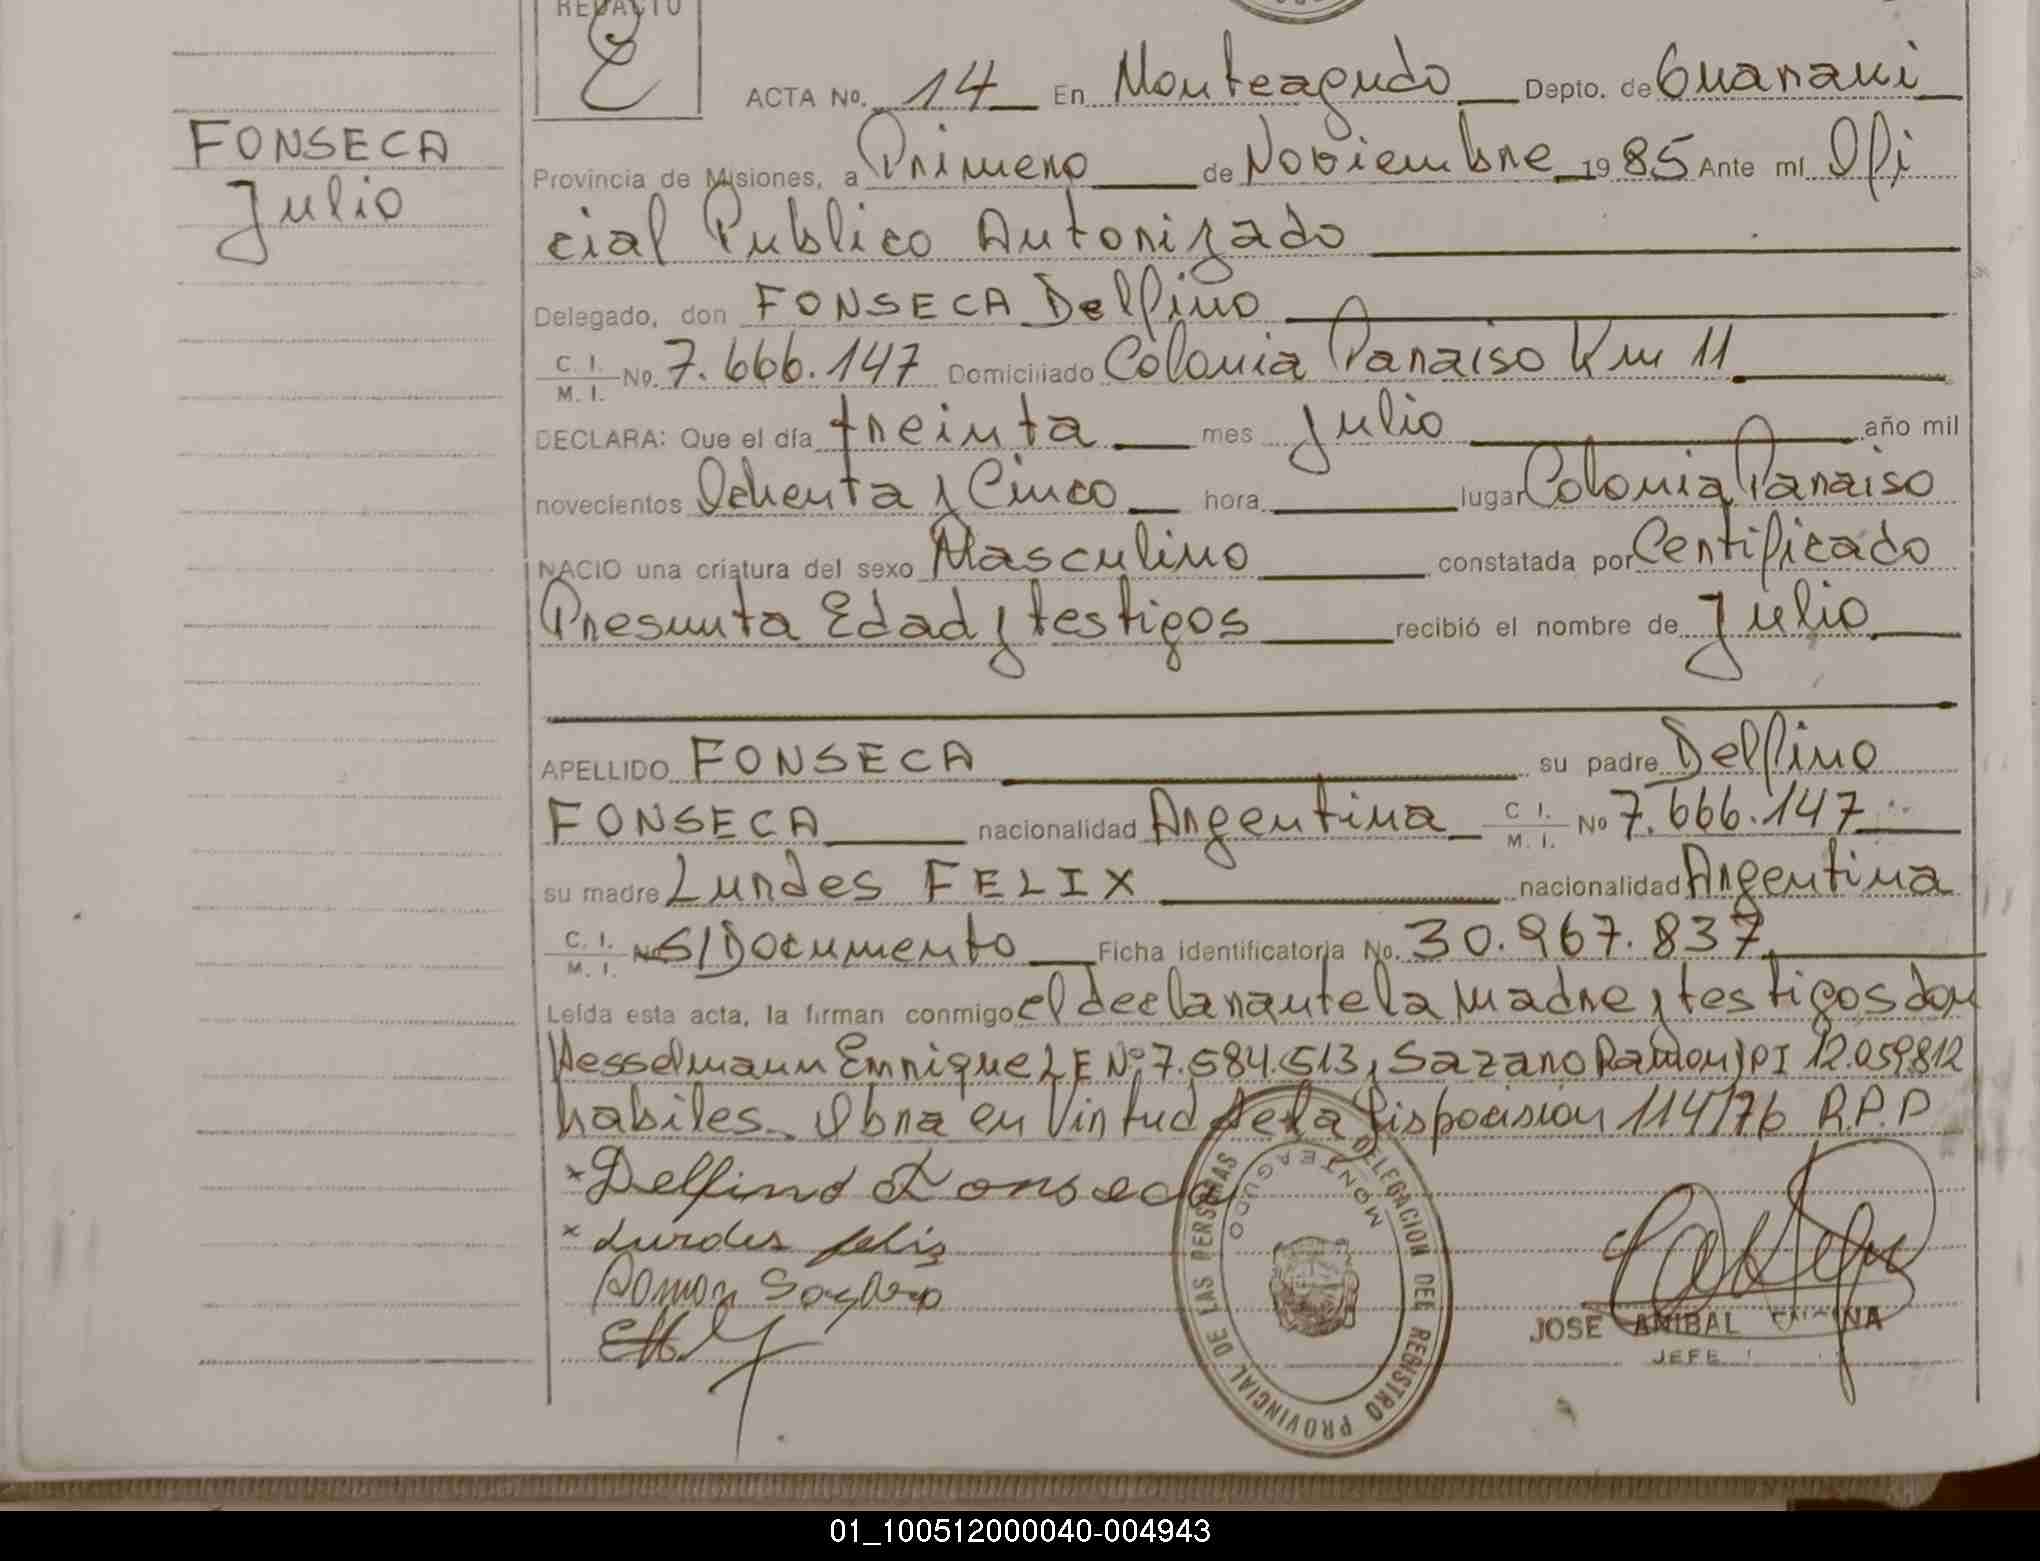 REDACTO
ACTA No. 14 En Monteagudo Depto. de Guarani
FONSECA
Julio
Provincia de Misiones, a Primero de Noviembre 1985 Ante mi Ofi
cial Publico Autorizado
Delegado, don FONSECA Delfino
C. I. M. I. No. 7.666.147 Domiciliado Colonia Paraiso Km 11
DECLARA: Que el día treinta mes julio año mil
novecientos Ochenta y Cinco hora lugar Colonia Paraiso
NACIO una criatura del sexo Masculino constatada por Certificado
Presunta Edad y testigos recibió el nombre de Julio
APELLIDO FONSECA su padre Delfino
FONSECA nacionalidad Argentina C I. M. I. No 7.666.147
su madre Lurdes FELIX nacionalidad Argentina
C. I. M. I. No S/Documento Ficha identificatoria No. 30.967.837
Leída esta acta, la firman conmigo el declarante la madre y testigos don
Hesselmann Enrique LE Nº 7.584.513, Sazaro Ramon DI 12.059.812
habiles. Obra en Virtud de la Dispocision 114/76 R.P.P
x Delfino Fonseca
x Lurdes felis
Ramon
DELEGACION DEL REGISTRO PROVINCIAL DE LAS PERSONAS
MONTEAGUDO
JOSE ANIBAL
JEFE
01_100512000040-004943